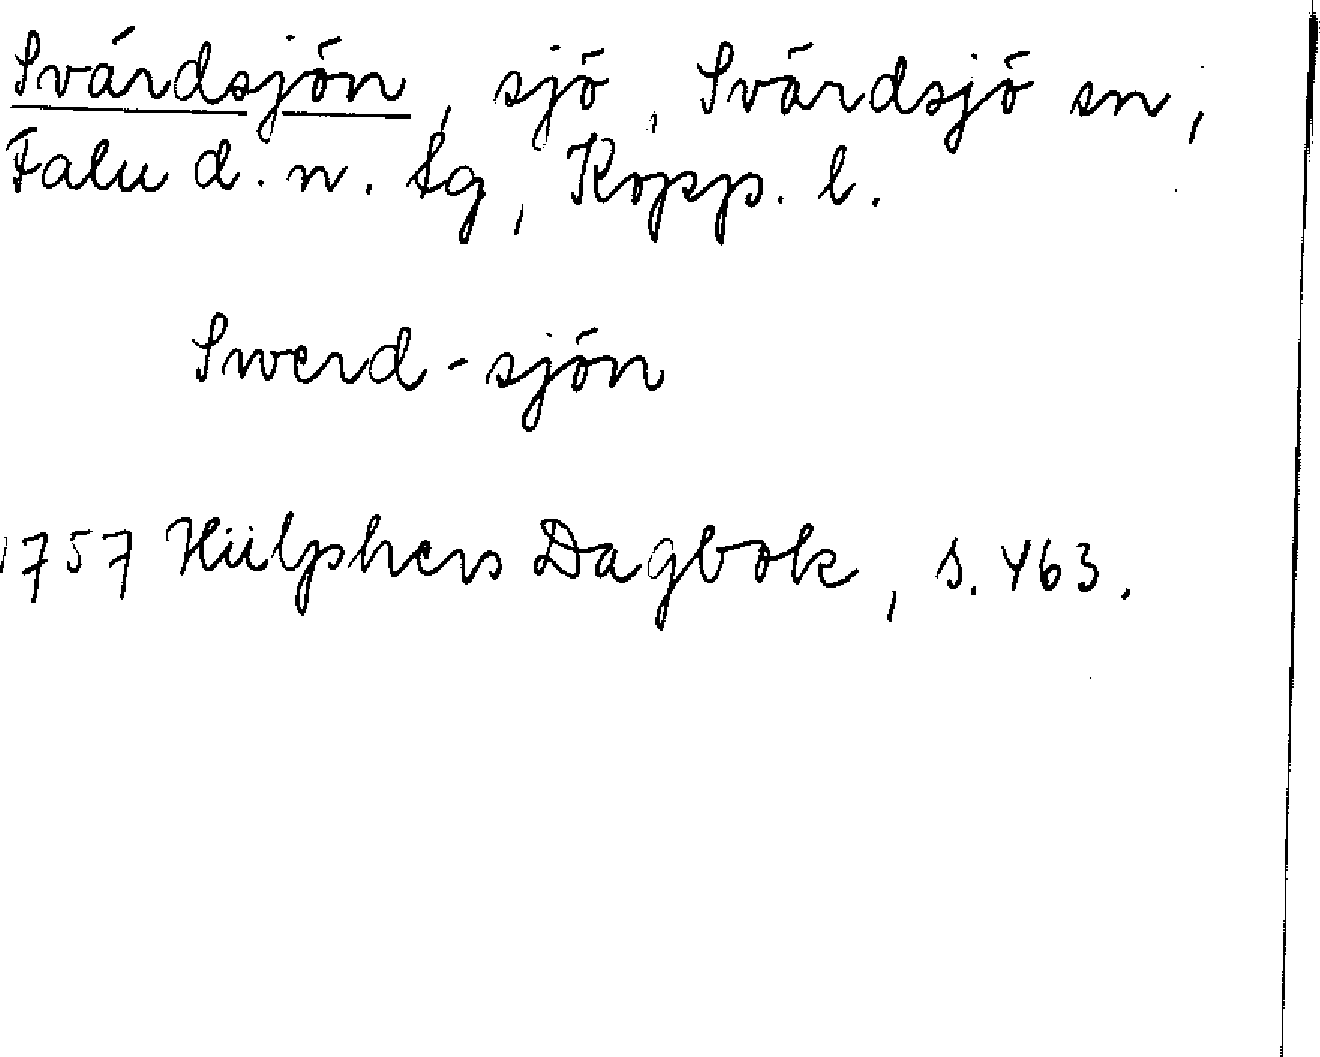 Svärdsjön, sjö, Svärdsjö sn,
Falu d. n. tg, Kopp. l.
Swerd-sjön
1757 Hülphers Dagbok, s. 463.